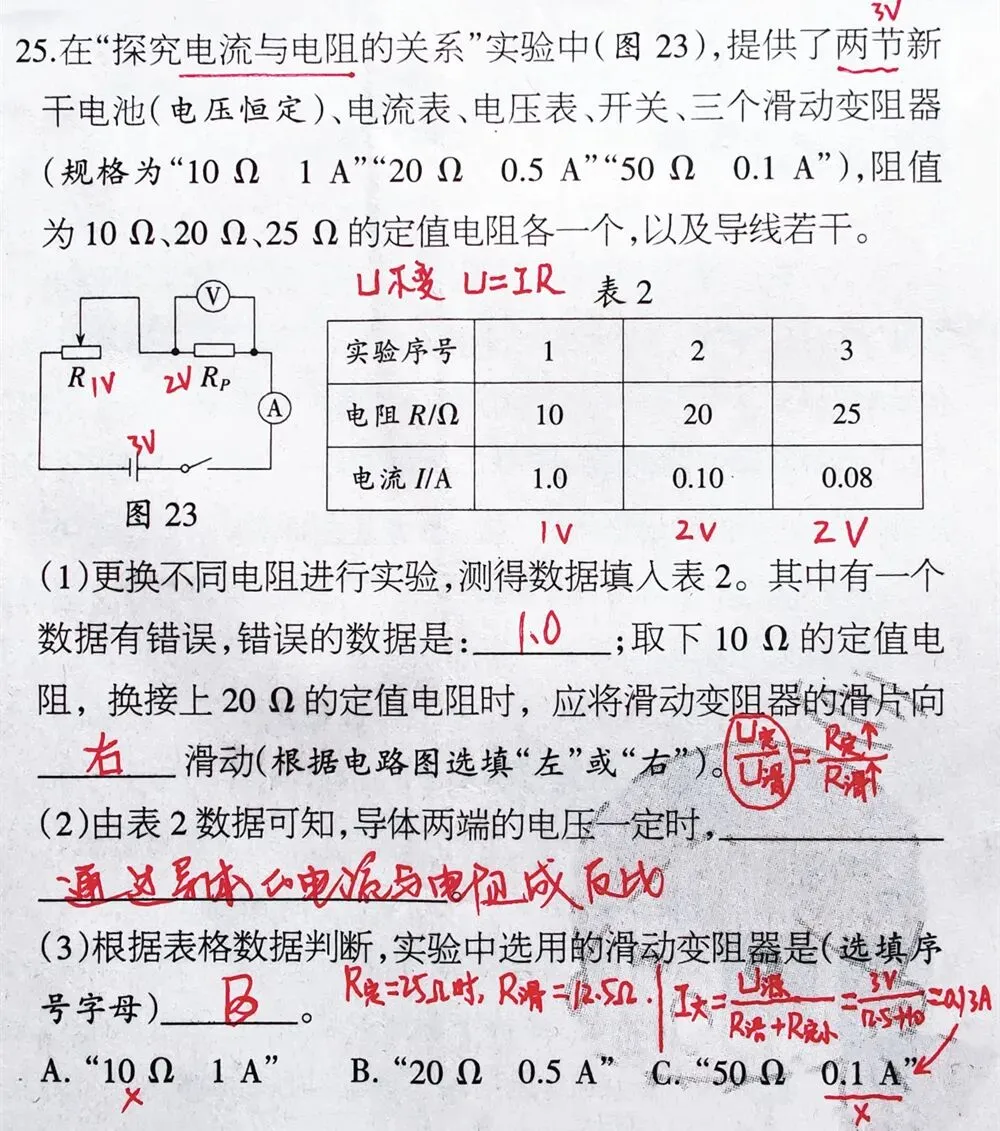 3V
25.在“探究电流与电阻的关系”实验中(图 23),提供了两节新
干电池(电压恒定)、电流表、电压表、开关、三个滑动变阻器
(规格为“10 Ω 1 A”“20 Ω 0.5 A”“50 Ω 0.1 A”),阻值
为 10 Ω、20 Ω、25 Ω 的定值电阻各一个,以及导线若干。
U不变 U=IR 表 2
V
R 1V 2V R_P
A
3V
图 23
实验序号 1 2 3
电阻 R/Ω 10 20 25
电流 I/A 1.0 0.10 0.08
1V 2V 2V
(1)更换不同电阻进行实验,测得数据填入表 2。其中有一个
数据有错误,错误的数据是: 1.0 ;取下 10 Ω 的定值电
阻，换接上 20 Ω 的定值电阻时，应将滑动变阻器的滑片向
右 滑动(根据电路图选填“左”或“右”)。 U定/U滑 = R定↑/R滑↑
(2)由表 2 数据可知,导体两端的电压一定时,
通过导体的电流与电阻成反比
(3)根据表格数据判断,实验中选用的滑动变阻器是(选填序
号字母) B 。 R定=25Ω时, R滑=12.5Ω. I大=U源/(R滑+R定小)=3V/(12.5+10)=0.13A
A. “10 Ω 1 A” B. “20 Ω 0.5 A” C. “50 Ω 0.1 A”
× ×